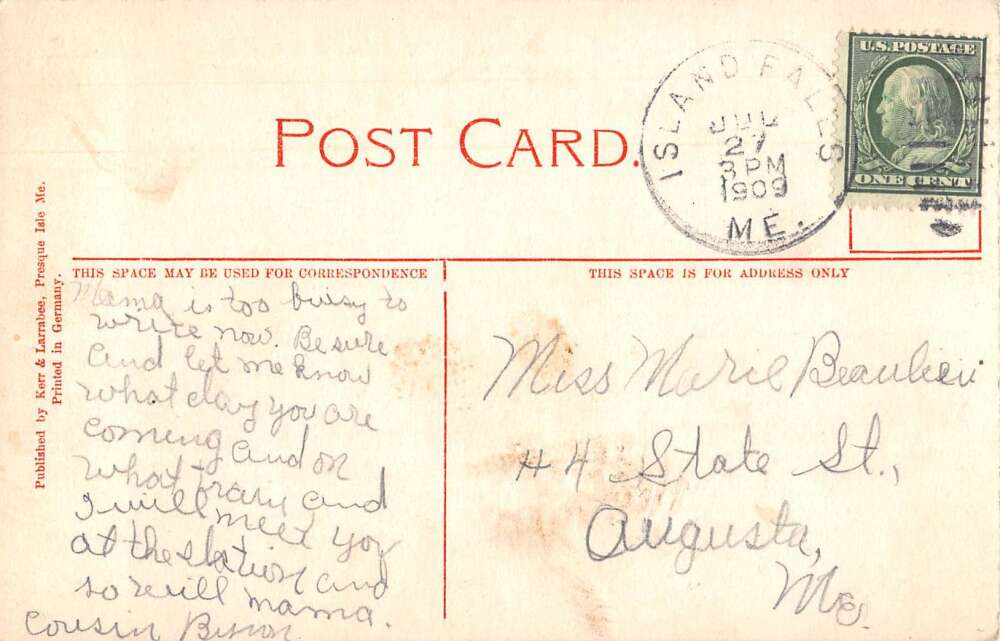 POST CARD.
ISLAND FALLS
JUL
27
3 PM
1909
ME.
U.S. POSTAGE
ONE CENT
Published by Kerr & Larrabee, Presque Isle Me.
Printed in Germany.
THIS SPACE MAY BE USED FOR CORRESPONDENCE
THIS SPACE IS FOR ADDRESS ONLY
Mama is too buisy to
write now. Be sure
and let me know
what day you are
coming and on
what train and
I will meet you
at the station and
so will mama.
Cousin
Miss Marie Beaulieu
44 State St.,
Augusta,
Me.